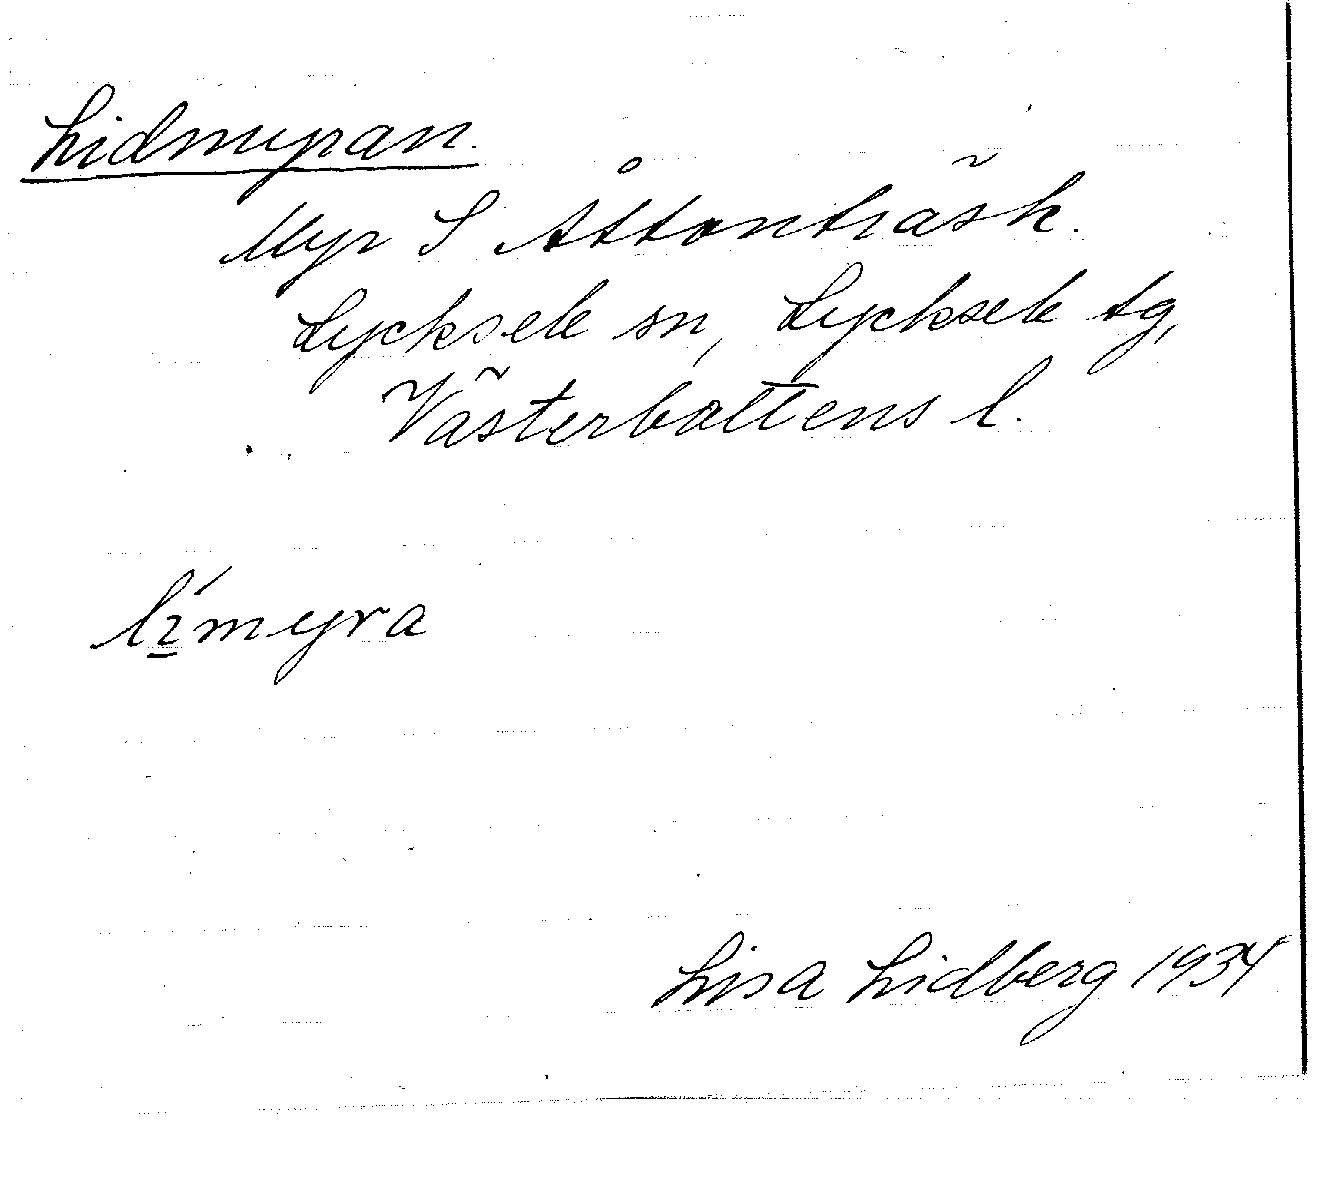 Lidmyran.
Myr S Åttonträsk.
Lycksele sn, Lycksele tg,
Västerbottens l.
lí̱myra
Lisa Lidberg 1934